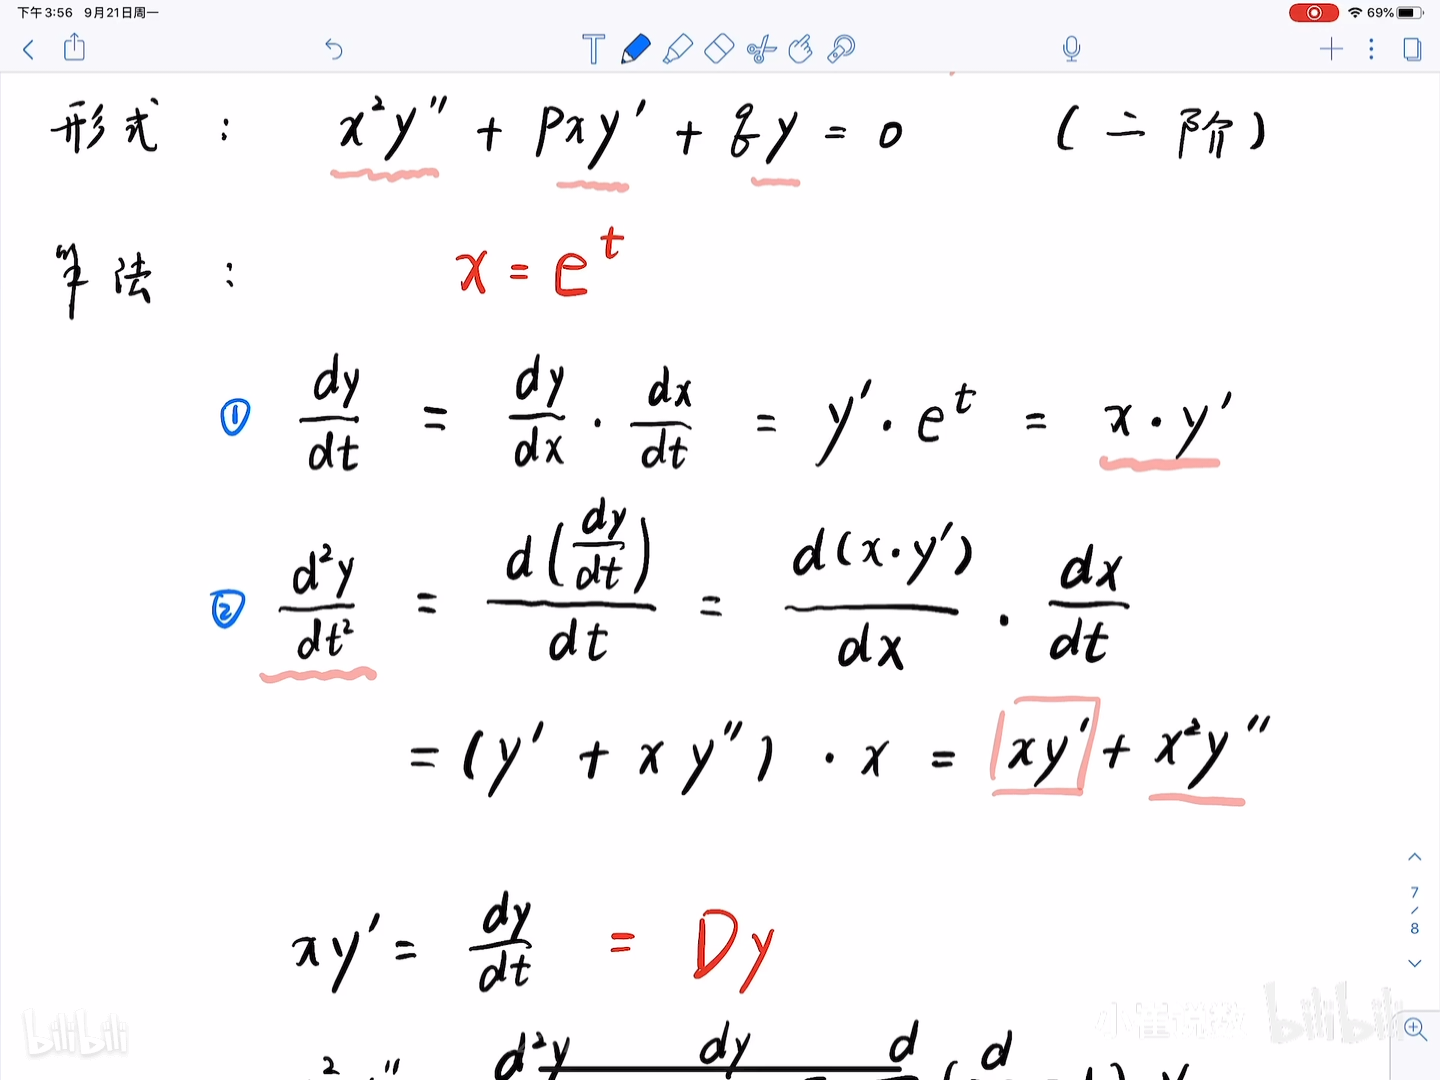 下午3:56 9月21日周一
69%
T
形式: x²y″ + pxy′ + qy = 0 (二阶)
算法: x = e^t
① dy/dt = dy/dx · dx/dt = y′·e^t = x·y′
② d²y/dt² = d(dy/dt)/dt = d(x·y′)/dx · dx/dt
= (y′ + xy″)·x = xy′ + x²y″
7/8
xy′ = dy/dt = Dy
bilibili
小崔说数 bilibili
d²y dy d d